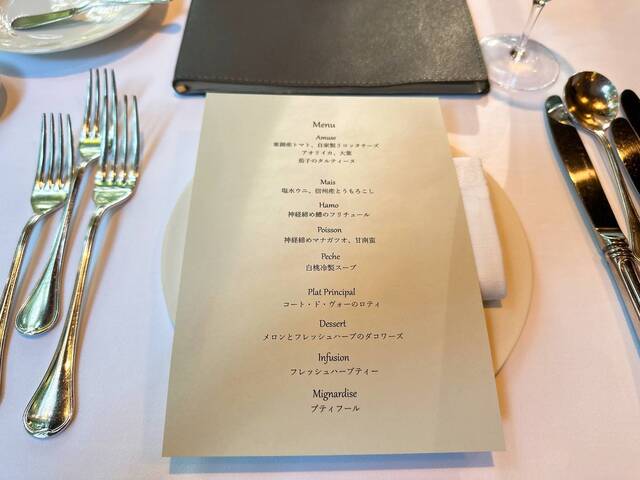 Menu
Amuse
産トマト、自家製リコッタチーズ
アオリイカ、大葉
茄子のタルティーヌ
Mais
塩水ウニ、信州産とうもろこし
Hamo
神経締め鱧のフリチュール
Poisson
神経締めマナガツオ、甘南蛮
Peche
白桃冷製スープ
Plat Principal
コート・ド・ヴォーのロティ
Dessert
メロンとフレッシュハーブのダコワーズ
Infusion
フレッシュハーブティー
Mignardise
プティフール